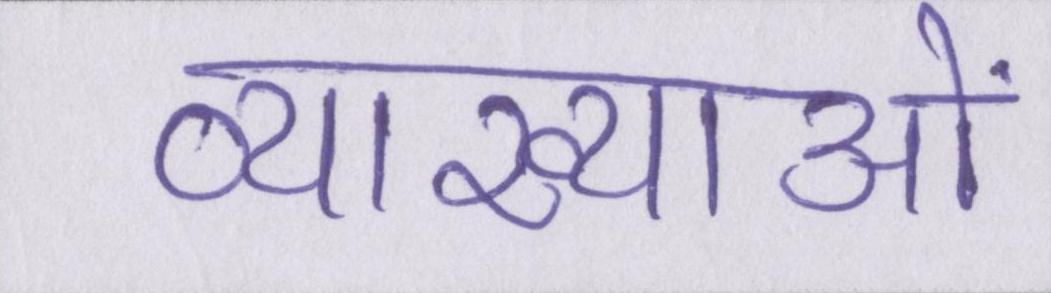 व्याख्याओं